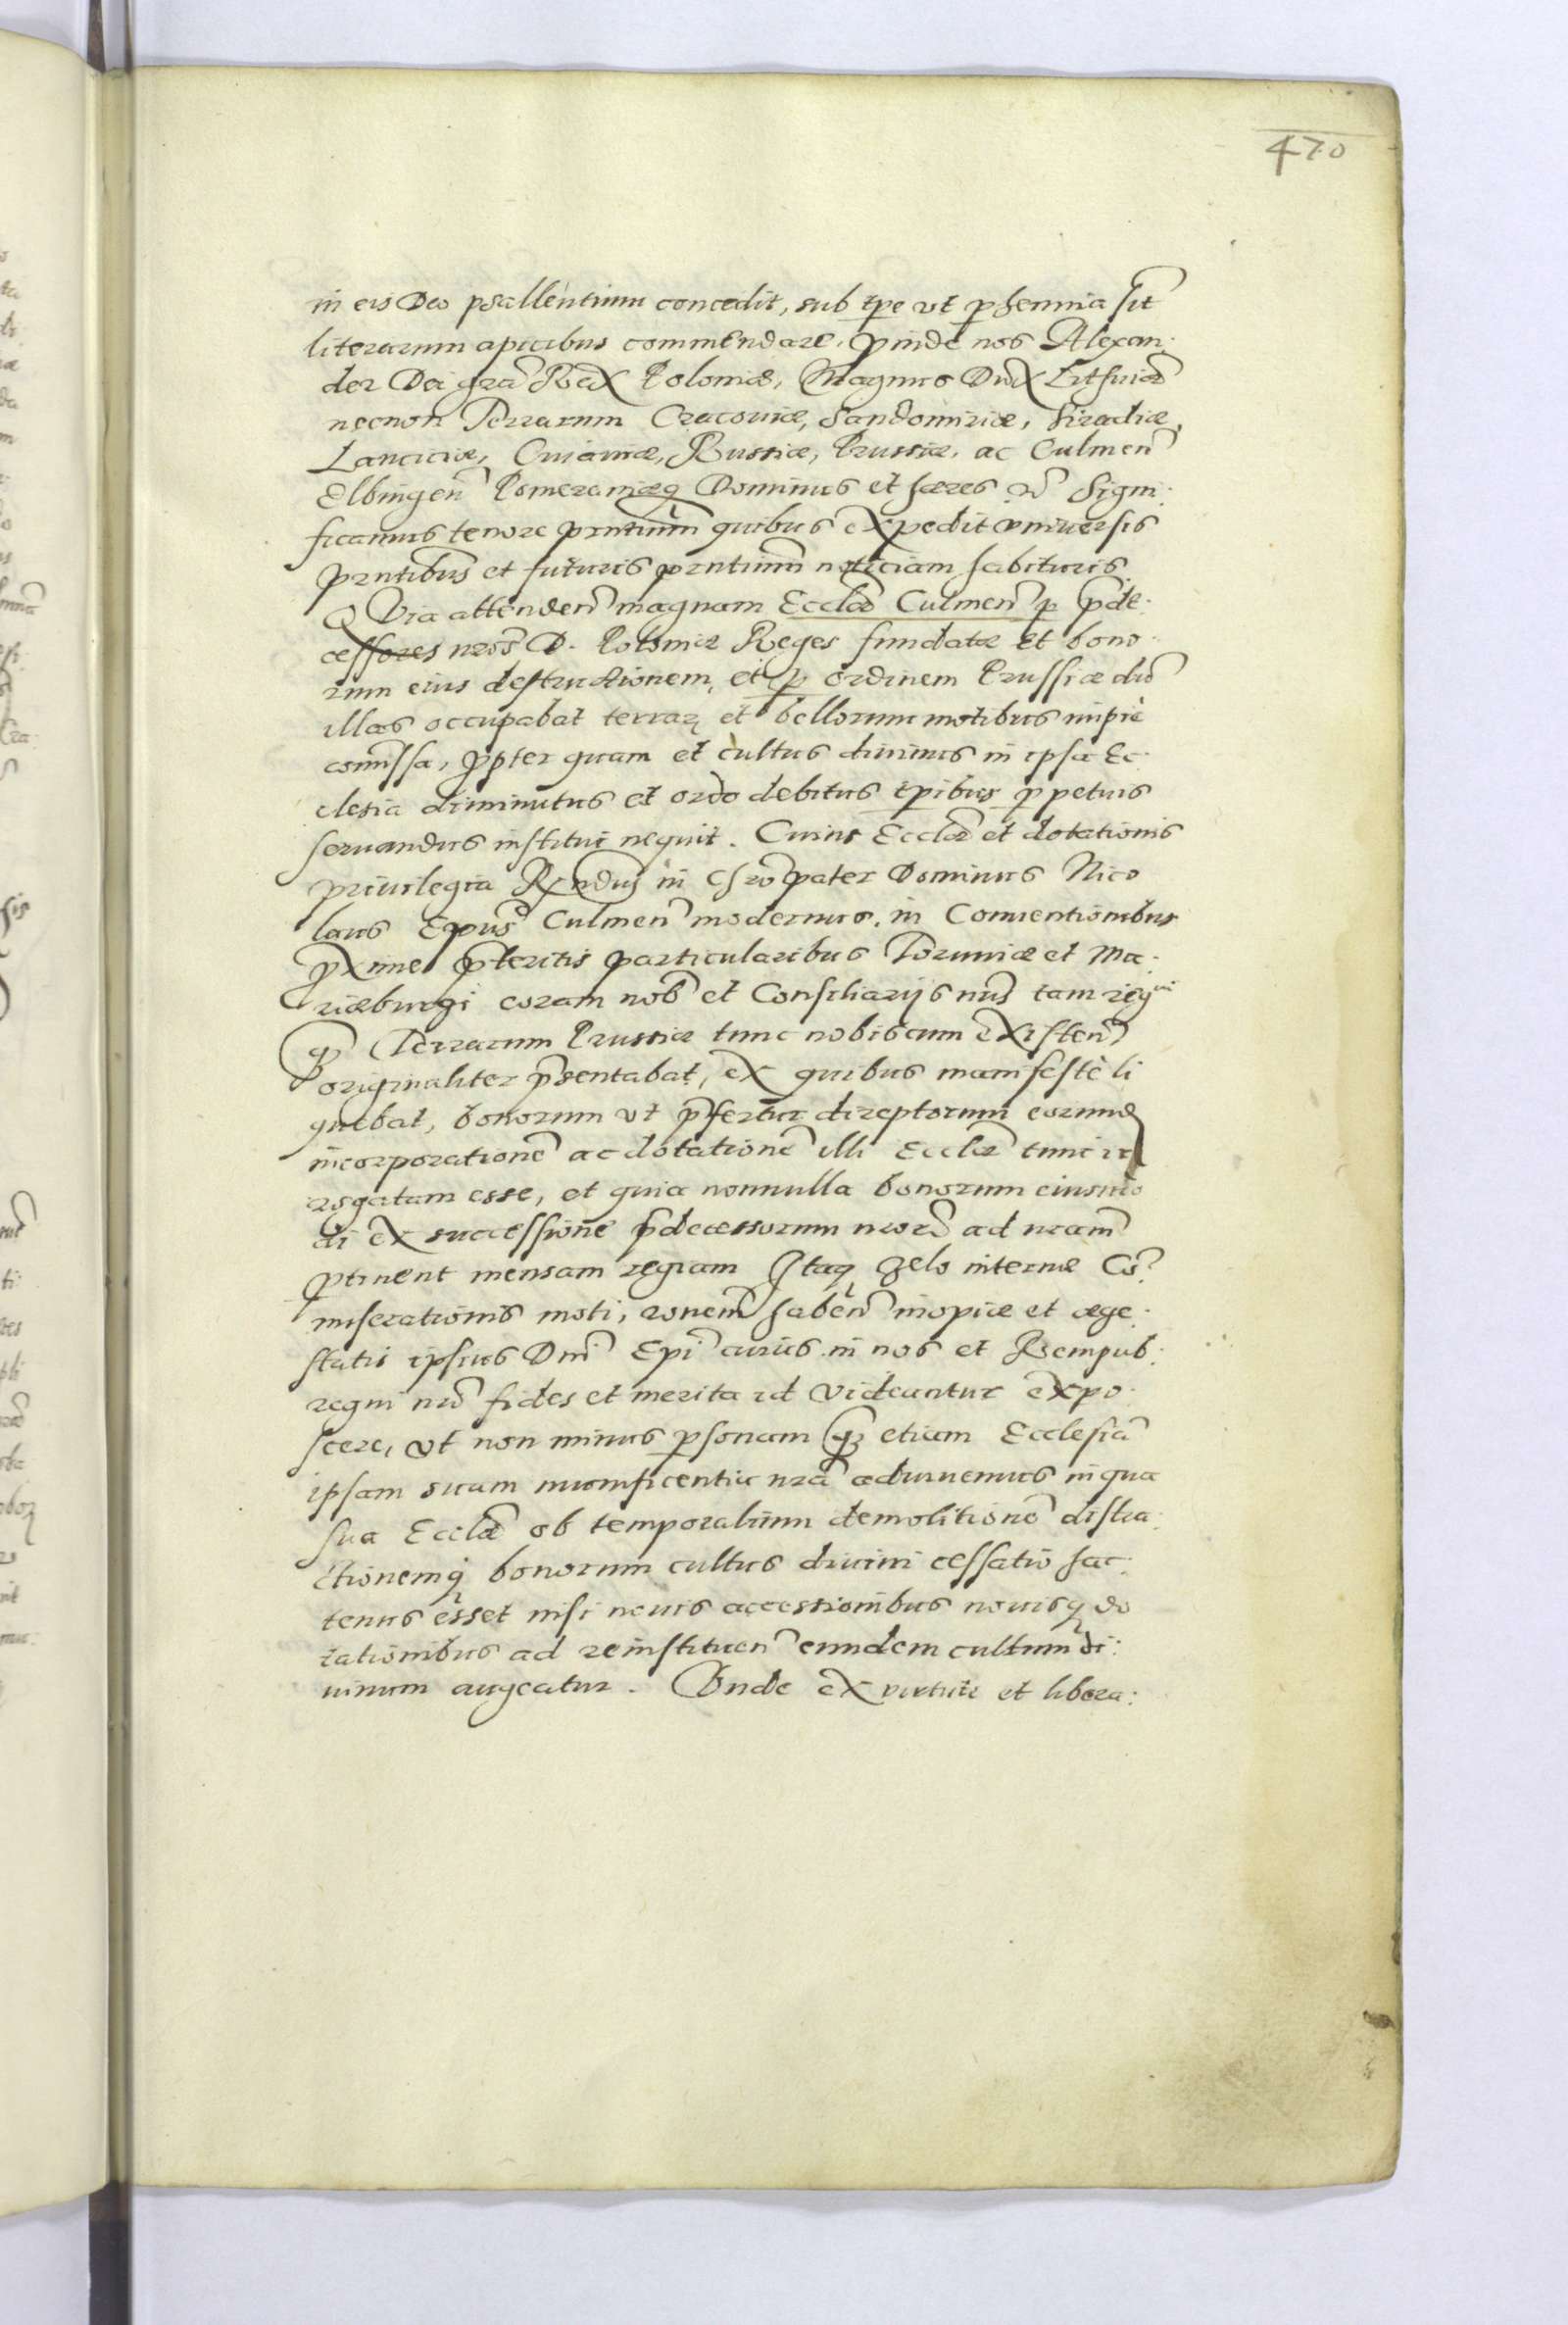 470
in eis Deo psallentium concedit, sub tpe vt phennia sit
literarum apicibus commendare. Proinde nos Alexan:
der Dei gra Rex Poloniæ, Magnus Dux Lithuaniæ
necnon Terrarum Cracouiæ, Sandomiriæ, Siradiæ,
Lanciciæ, Cuiauiæ, Russiæ, Prussiæ, ac Culmen
Elbingen Pomeraniæq Dominus et hæres &c Signi:
ficamus tenore pntium quibus expedit vniuersis
pntibus et futuris pntium noticiam habituris.
QVia attenden magnam Eccliæ Culmen p præde:
cessores nros D. Poloniæ Reges fundatæ et bono:
rum eius destructionem, et p ordinem Prussiæ dum
illas occupabat terras et bellorum motibus impiè
comissa, ppter quam et cultus diuinus in ipsa Ec:
clesia diminutus et ordo debitus tpibus ppetuis
seruandus institui nequit. Cuius Eccliæ et dotationis
priuilegia Rxndus in Chro pater Dominus Nico
laus Epus Culmen modernus, in Conuentionibus
pxime pteritis particularibus Toruniæ et Ma:
riæburgi coram nob et Consiliarijs nris tam regni
q Terrarum Prussiæ tunc nobiscum existen
originaliter psentabat, ex quibus manifestè li
quebat, bonorum vt pfertur direptorum eorund
incorporatione ac dotatione illi Eccliæ tunc ir
rogatam esse, et quia nonnulla bonorum eiusmo
di ex successione pdecessorum nror ad nram
ptinent mensam regiam Itaq zelo internæ Co
miserationis moti, ronem haben inopiæ et æge:
statis ipsius Dni Epi cuius in nos et Rempub:
regni nri fides et merita id videantur expo:
scere, vt non minus psonam q etiam Ecclesia
ipsam suam munificentia nra adiuuemus in qua
sua Eccla ob temporalium demolitione distra:
ctionemq bonorum cultus diuini cessatio hac:
tenus esset nisi nouis accessionibus nouisq do
tationibus ad reinstituen eundem cultum di:
uinum augeatur. Vnde ex virtute et libera: